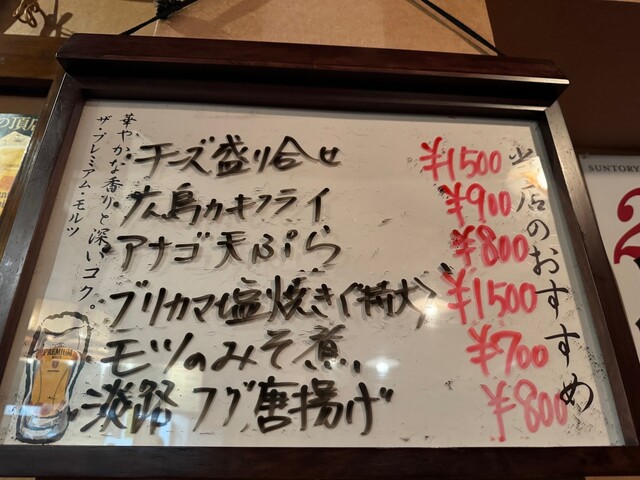 当店のおすすめ
チーズ盛り合せ ¥1500
広島カキフライ ¥900
アナゴ天ぷら ¥800
ブリカマ塩焼き(特大) ¥1500
モツのみそ煮 ¥700
淡路フグ唐揚げ ¥800
華やかな香りと深いコク。
ザ・プレミアム・モルツ
PREMIUM
SUNTORY